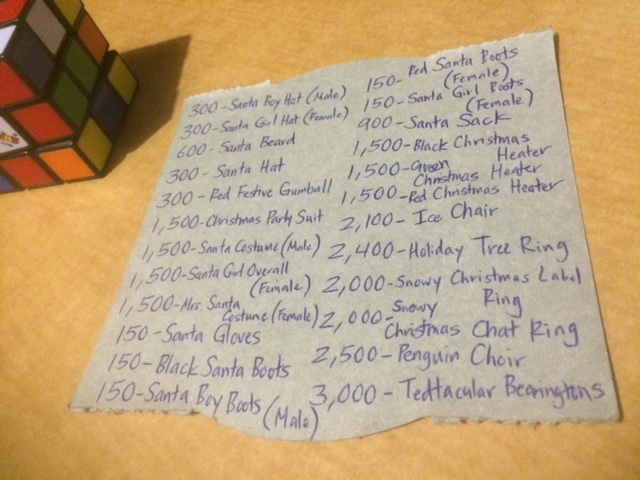 300-Santa Boy Hat (Male)
300-Santa Girl Hat (Female)
600-Santa Beard
300-Santa Hat
300-Red Festive Gumball
1,500-Christmas Party Suit
1,500-Santa Costume (Male)
1,500-Santa Girl Overall
(Female)
1,500-Mrs. Santa
Costume (Female)
150-Santa Gloves
150-Black Santa Boots
150-Santa Boy Boots
(Male)
150-Red Santa Boots
(Female)
150-Santa Girl Boots
(Female)
900-Santa Sack
1,500-Black Christmas
Heater
1,500-Green
Christmas Heater
1,500-Red Christmas Heater
2,100-Ice Chair
2,400-Holiday Tree Ring
2,000-Snowy Christmas Label
Ring
2,000-Snowy
Christmas Chat Ring
2,500-Penguin Choir
3,000-Tedtacular Bearingtons